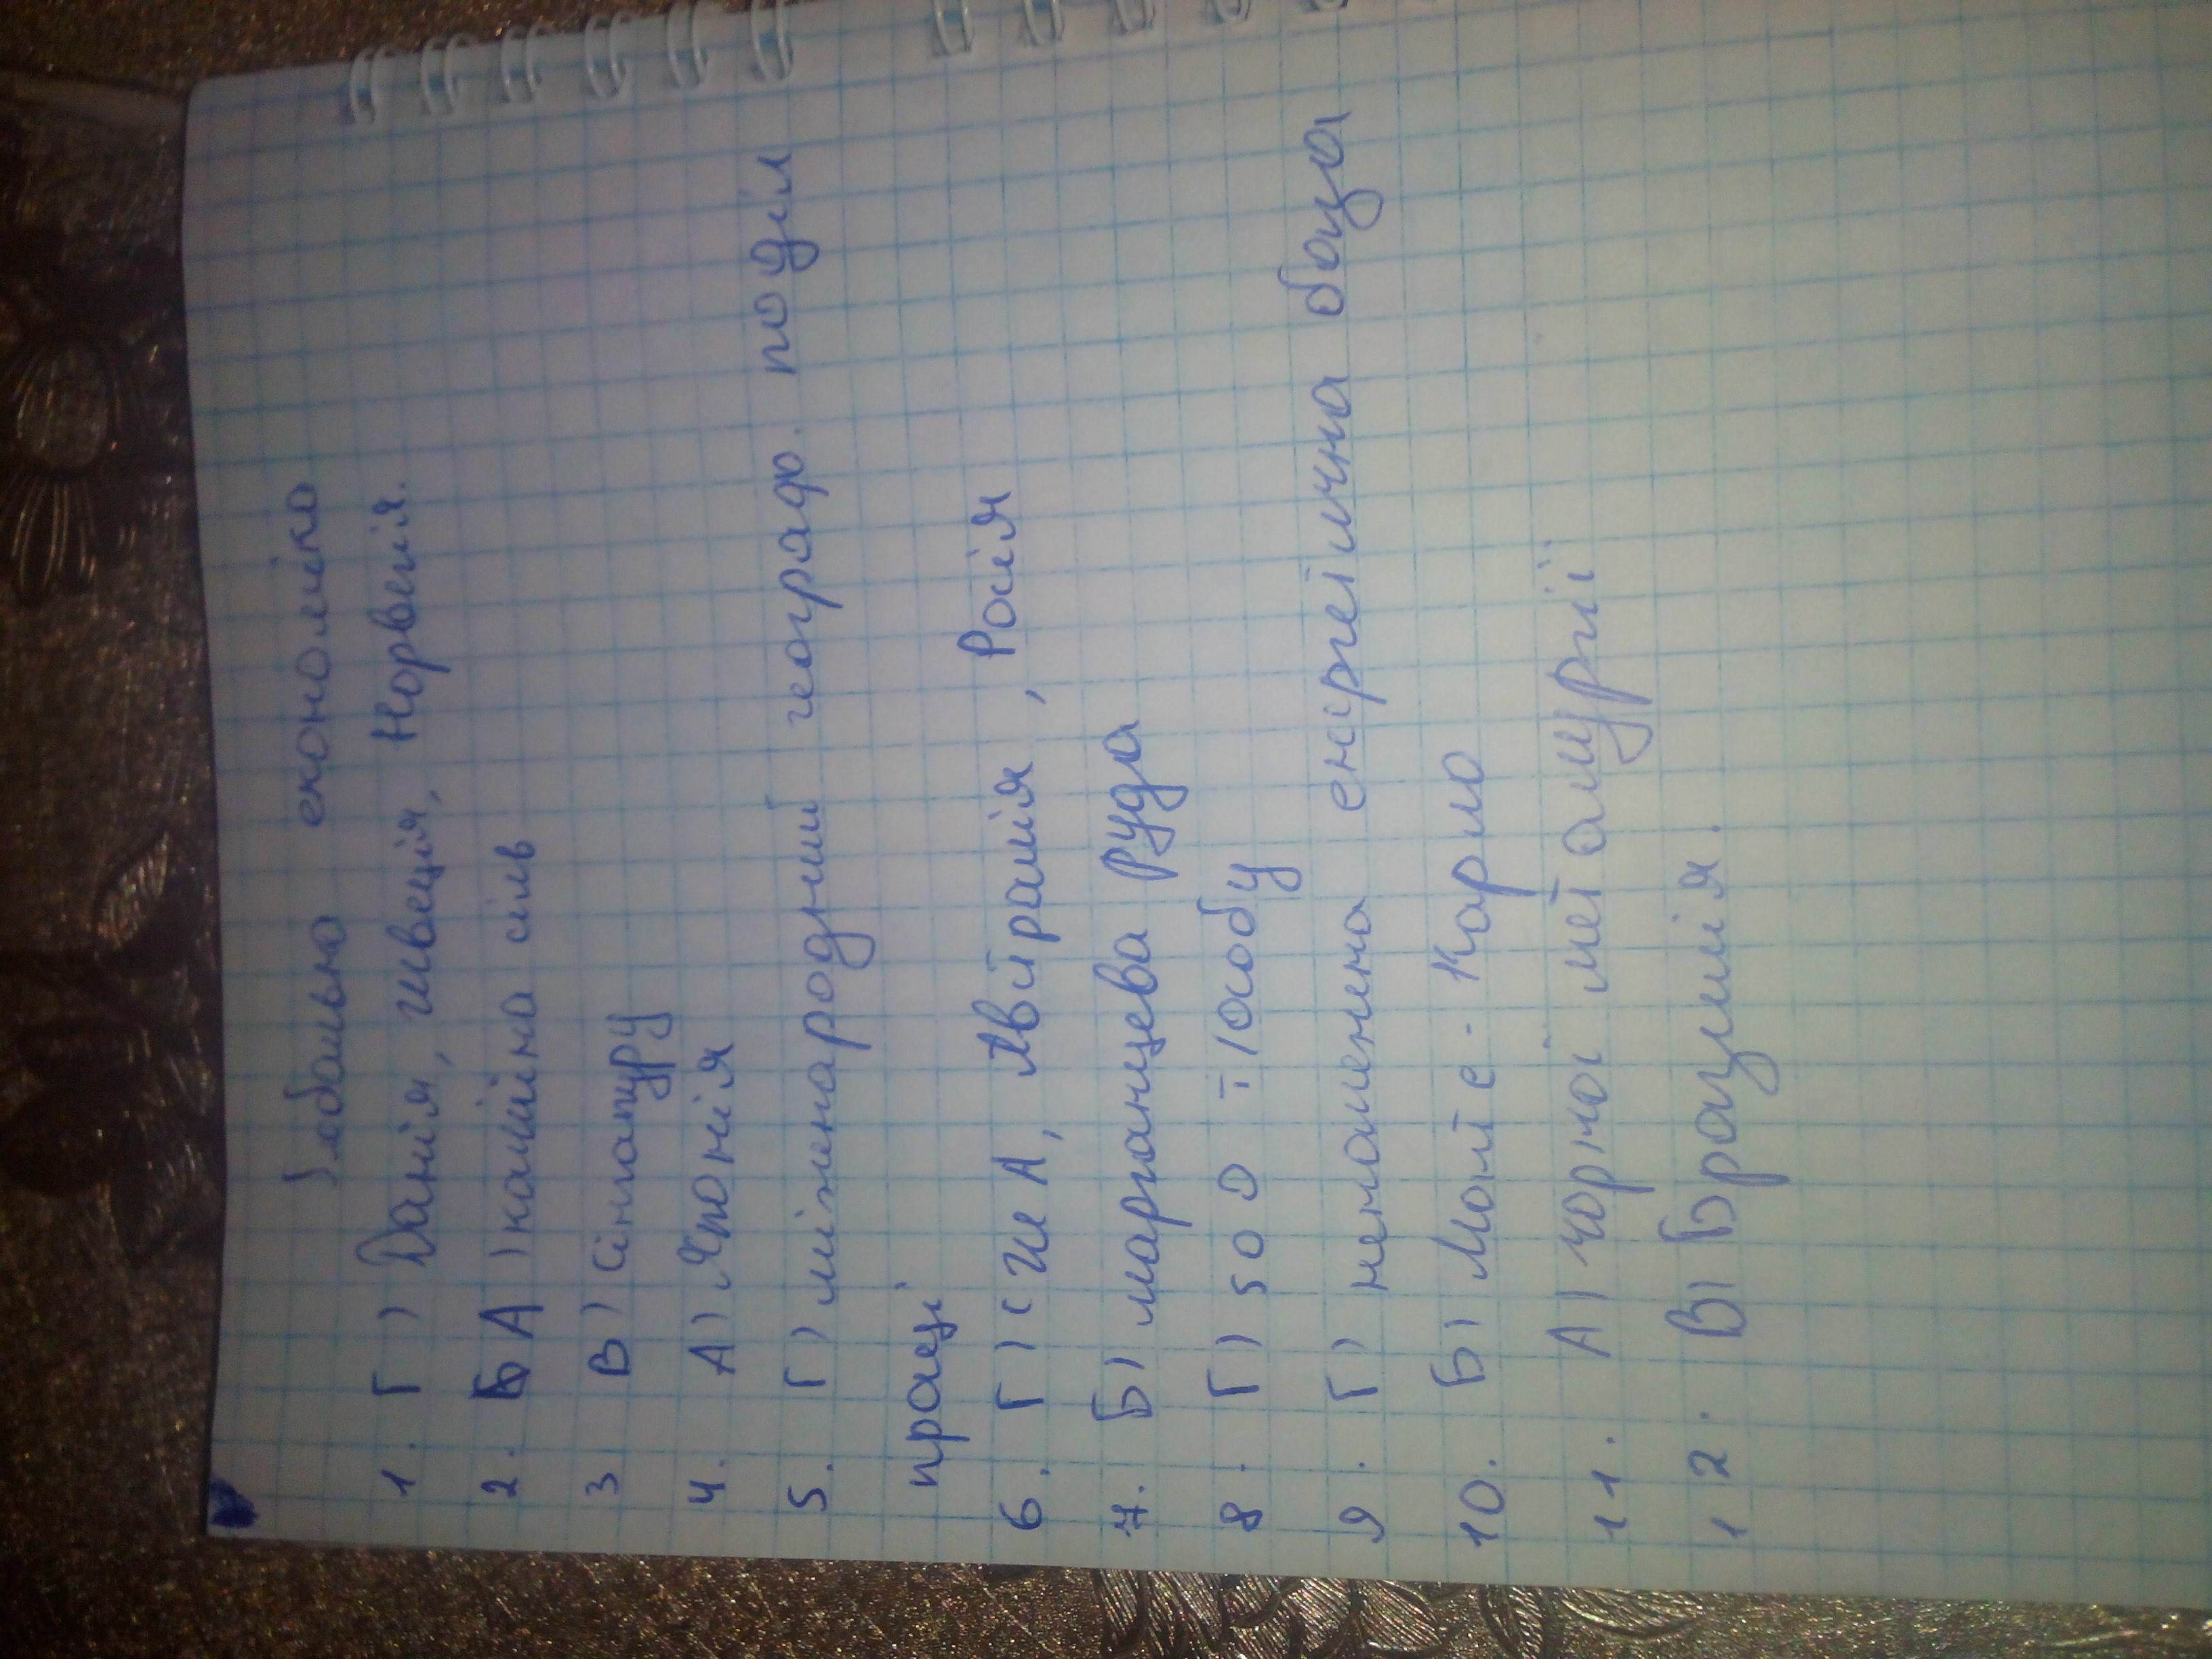 Глобально економіка
1. Г) Данія, Швеція, Норвегія.
2. А) кам'яна сіль
3 В) Сінгапуру
4. А) Японія
5. Г) міжнародний географ. поділ
праці
6. Г) США, Австралія, Росія
7. Б) марганцева руда
8. Г) 500 т 1 особу
9. Г) незамінна енергетична база
10. Б) Монте-Карло
11. А) чорної металургії
12. В) Бразилія.